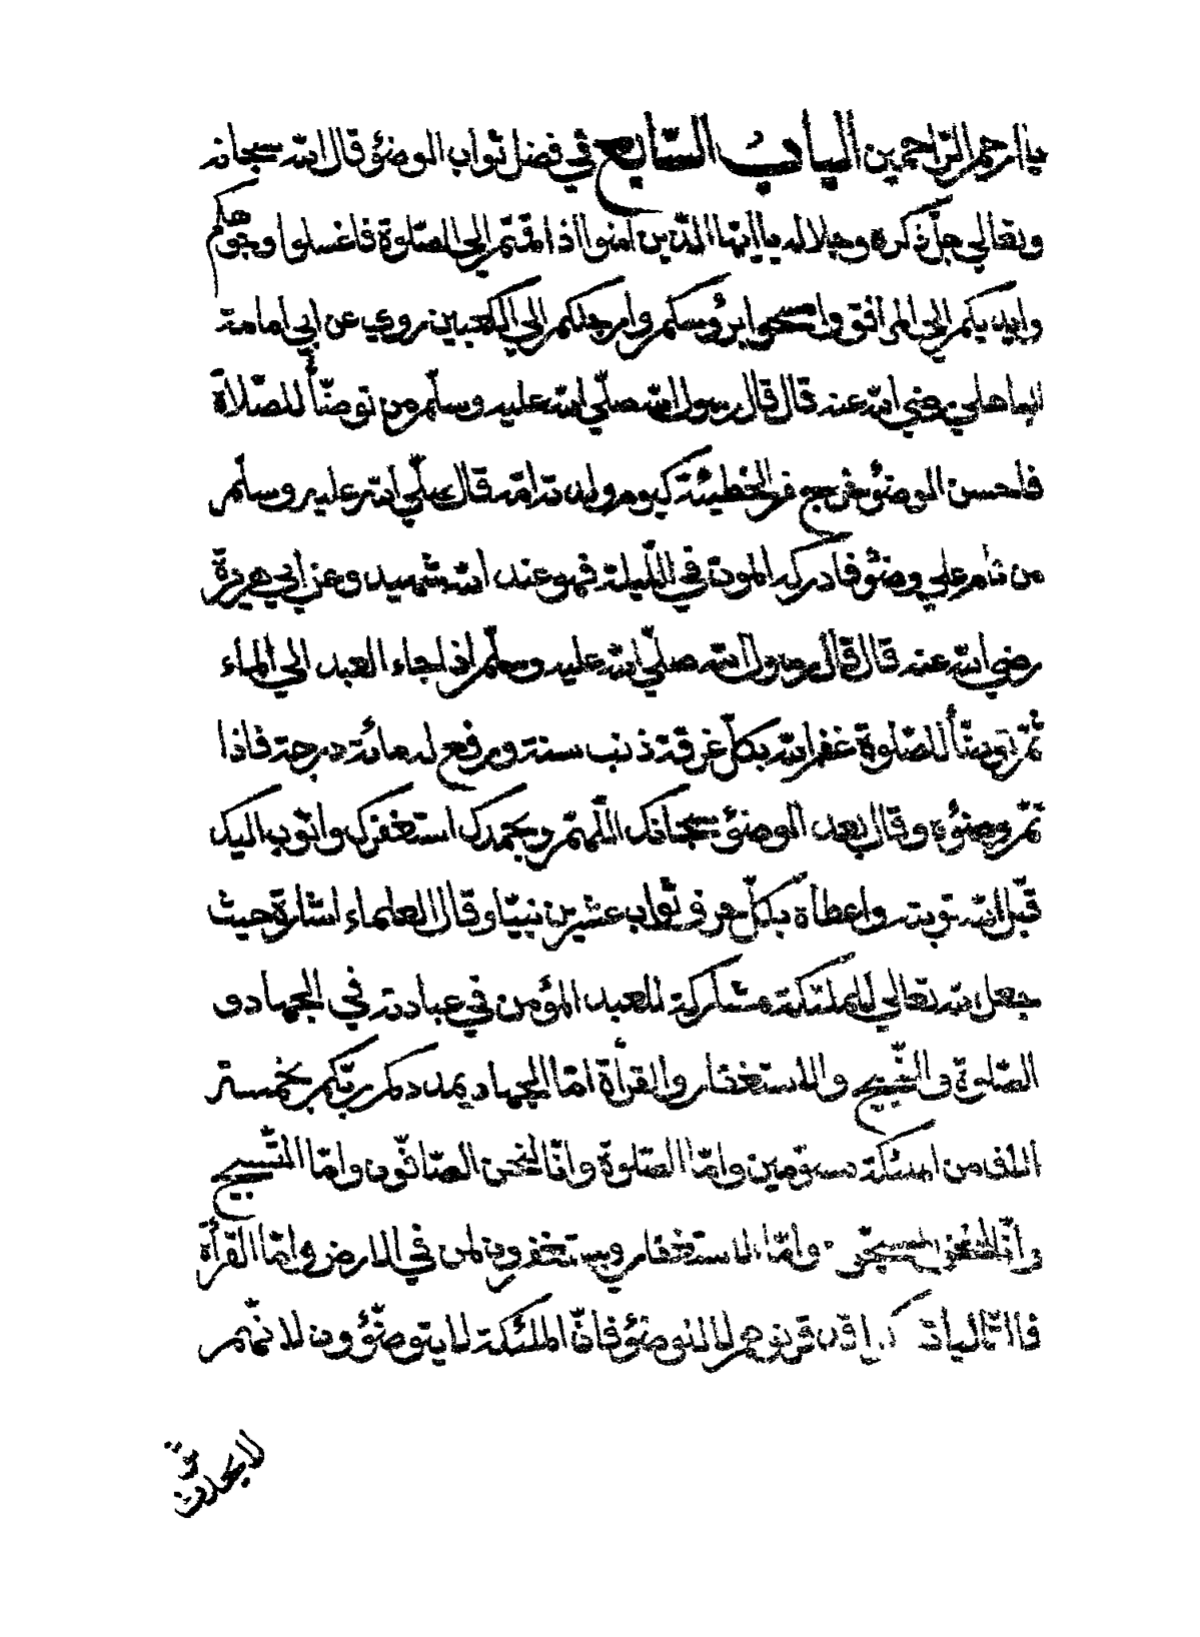 يا ارحم الرّاحمين الباب السّابع في فضل ثواب الوضؤ قال الله سبحانه
وتعالي جلّ ذكره وجلاله يا ايّها الّذين امنوا اذا قمتم الي الصّلوة فاغسلوا وجوهكم
وايديكم الي المرافق وامسحوا برؤسكم وارجلكم الي الكعبين روي عن ابي امامة
الباهلي رضي الله عنه قال قال رسول الله صلّي الله عليه وسلّم من توضّأ للصّلاة
فاحسن الوضؤ خرج من الخطيئة كيوم ولدته امّه قال صلّي الله عليه وسلّم
من نام علي وضؤ فادركه الموت في اللّيلة فهو عند الله شهيد وعن ابي هريرة
رضي الله عنه قال قال رسول الله صلّي الله عليه وسلّم اذا جاء العبد الي الماء
ثمّ توضّأ للصّلوة غفر الله بكلّ غرفة ذنب سنة ويرفع له مائة درجة فاذا
تمّ وضوؤه وقال بعد الوضؤ سبحانك اللّهمّ وبحمدك استغفرك واتوب اليك
قبّل الله توبته واعطاه بكلّ حرف ثواب عشرين نبيّا وقال العلماء اشارة حيث
جعل الله تعالي للملئكة مشاركة للعبد المؤمن في عبادته في الجهاد و
الصّلوة و التّسبيح والاستغفار والقرأة امّا الجهاد يمددكم ربّكم بخمسة
الاف من الملئكة مسوّمين وامّا الصّلوة وانّا لنحن الصّافّون وامّا التّسبيح
وانّا لنحن المسبّحون وامّا الاستغفار ويستغفرون لمن في الارض وامّا القرأة
فالتّاليات الوضؤ فانّ الملئكة لا يتوضّؤون لانّهم
لا يحدثون